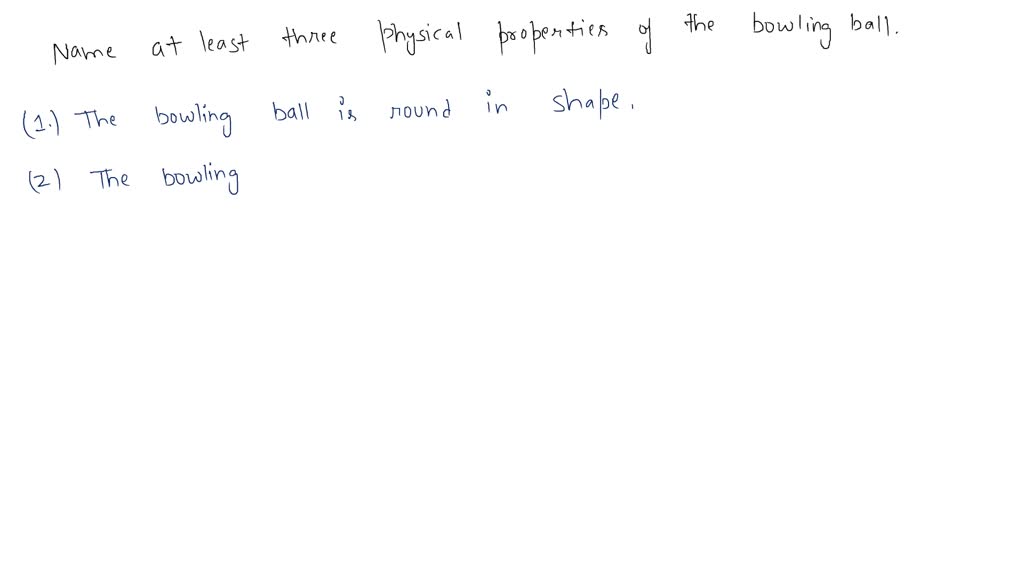 Name at least three physical properties of the bowling ball.
(1.) The bowling ball is round in shape.
(2) The bowling